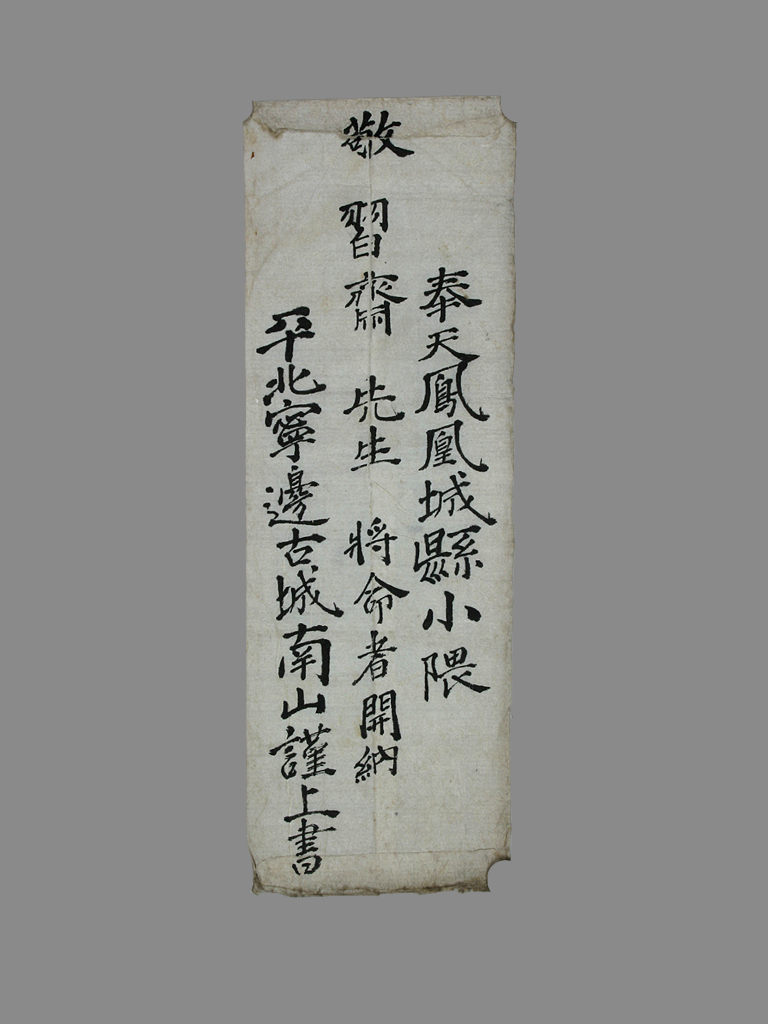 奉天鳳凰城縣小隈
敬 習齋 先生 將命者開納
平北寧邊古城南山謹上書